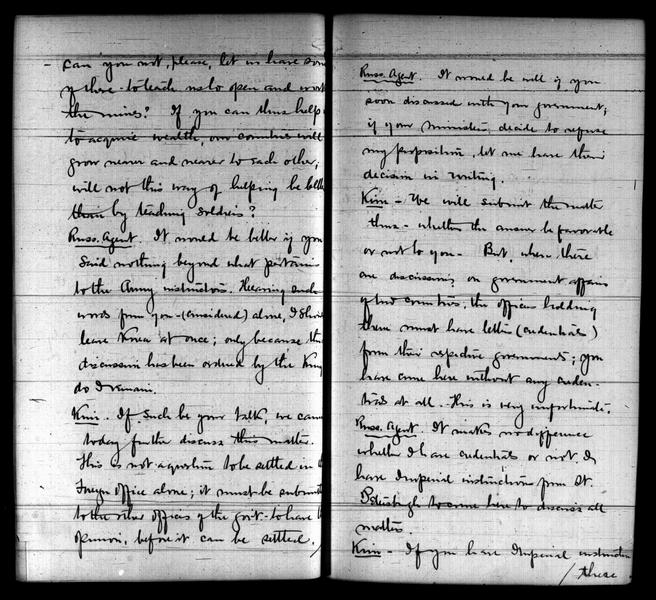 - can you not, please, let us have som
of there - to teach us to open and work
the mines? If you can thus help
to acquire wealth, our countries will
grow nearer and nearer to each other;
will not this way of helping be bette
than by teaching soldiers?
Russ. Agent. It would be better if you
said nothing beyond what pertains
to the Army instructors. Hearing such
words from you - (considered) alone, I should
leave Korea at once; only because the
discussion has been ordered by the King
do I remain.
Kim - If such be your talk, we cann
today further discuss this matter.
This is not a question to be settled in
Foreign Office alone; it must be submit
to the other offices of the govt. to have
opinion, before it can be settled.
Russ. Agent. It would be well if you
soon discussed with your government;
if your ministers decide to refuse
my proposition, let me have their
decision in writing.
Kim - We will submit the matter
thus - whether the answer be favorable
or not to you - But, when there
are discussions on government affairs
of two countries, the officers holding
them must have letters (credentials)
from their respective governments; you
have come here without any creden-
tials at all. This is very unfortunate.
Russ. Agent. It makes no difference
whether I have credentials or not. I
have Imperial instructions from St.
Petersburgh to come here to discuss all
matters.
Kim - If you have Imperial instruction
/ these